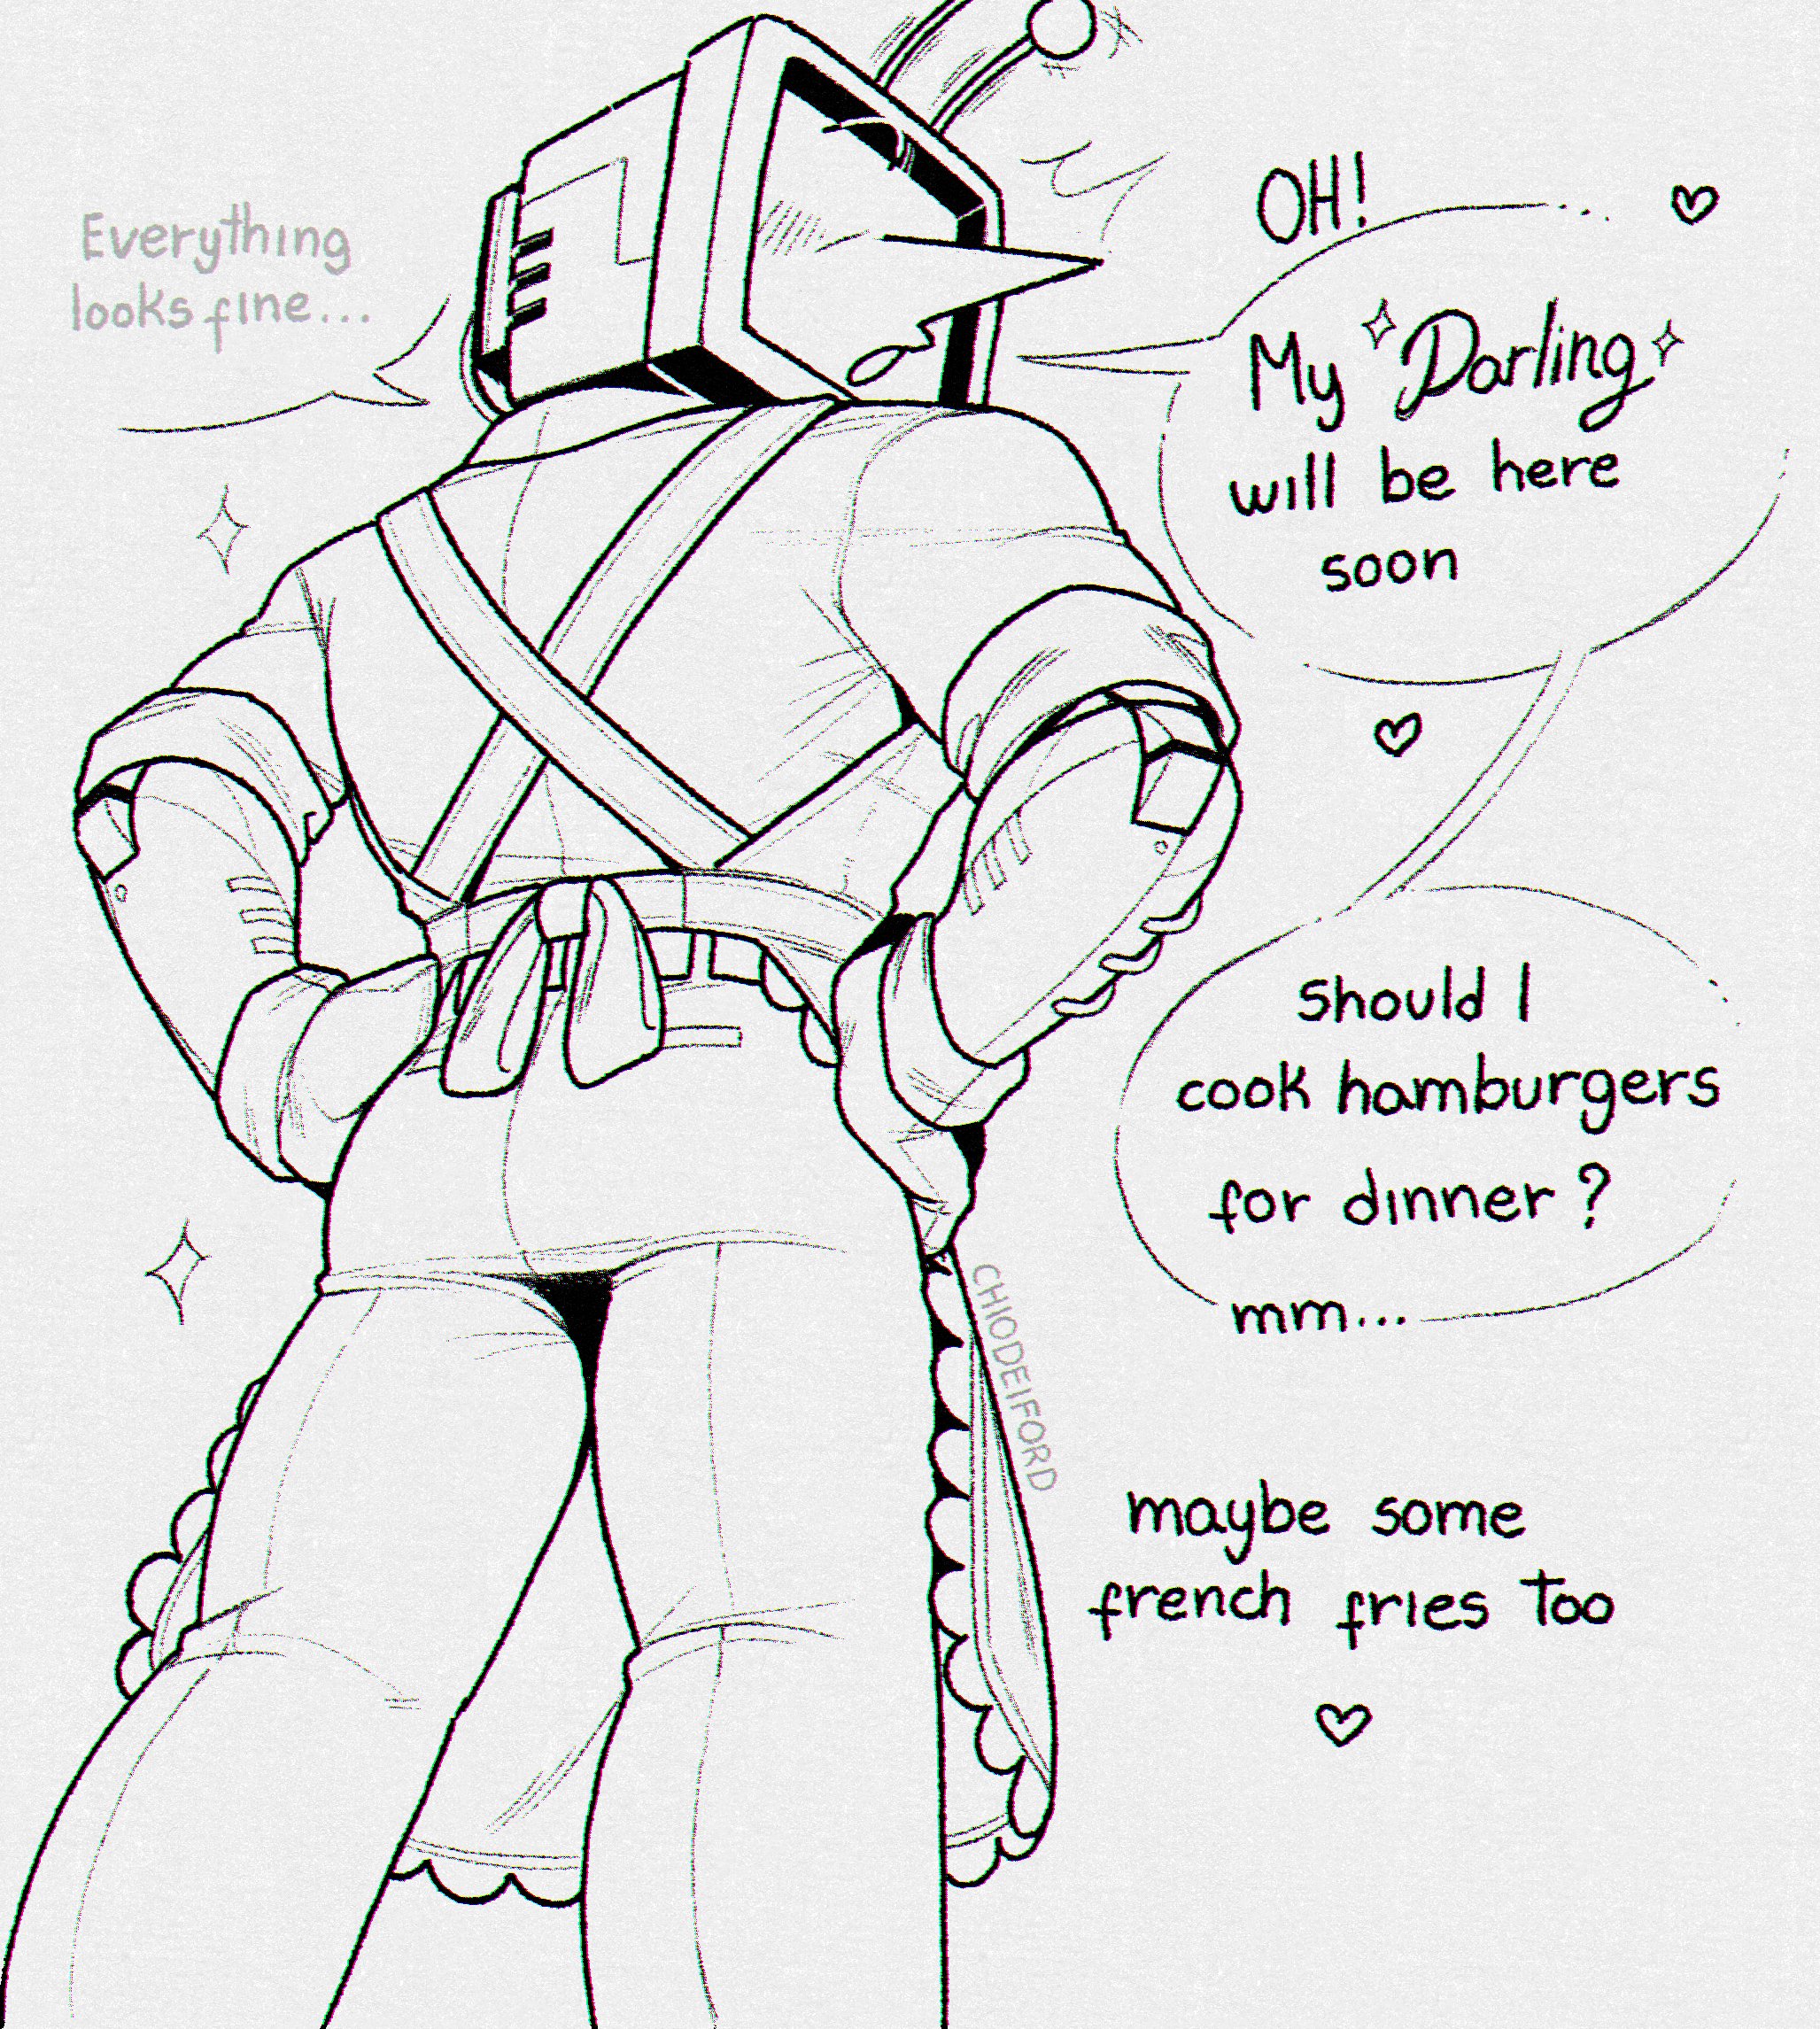 Everything
looks fine...
OH!
My Darling
will be here
soon
should I
cook hamburgers
for dinner?
mm...
maybe some
french fries too
CHIODEIFORD